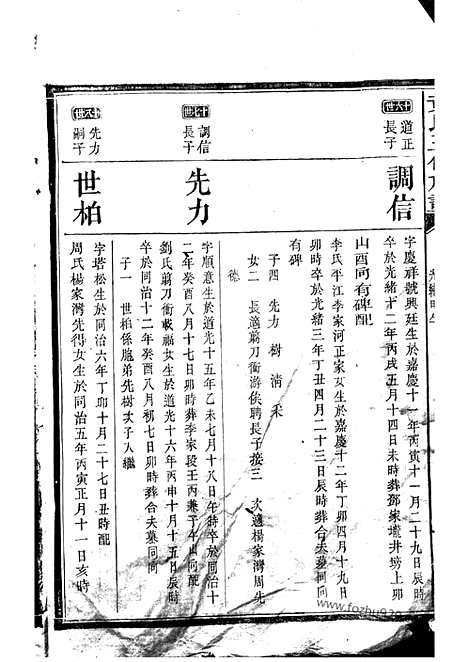 十六世
道正
長子
調信
字慶祥號興廷生於嘉慶十一年丙寅十一月二十九日辰時
卒於光緒十二年丙戌五月十四日未時葬鄧家壠井塝上卯
山酉向有碑配
李氏平江李家河正家女生於嘉慶十二年丁卯四月十九日
卯時卒於光緒三年丁丑四月二十三日辰時葬合夫墓同向
有碑
子四 先力 樹 清 采
女二 長適翦刀衝游俟聘長子接三 次適楊家灣周先
德
十七世
調信
長子
先力
字順意生於道光十五年乙未七月十八日午時卒於同治十
二年癸酉八月十七日卯時葬李家段壬丙兼子午向配
劉氏翦刀衝載福女生於道光十六年丙申十月十五日辰時
卒於同治十二年癸酉八月初七日卯時葬合夫墓同向
子一 世柏係胞弟先樹次子入繼
十八世
先力
嗣子
世柏
字塔松生於同治六年丁卯十月二十七日丑時配
周氏楊家灣先得女生於同治五年丙寅正月十一日亥時
www.fozhu920.com